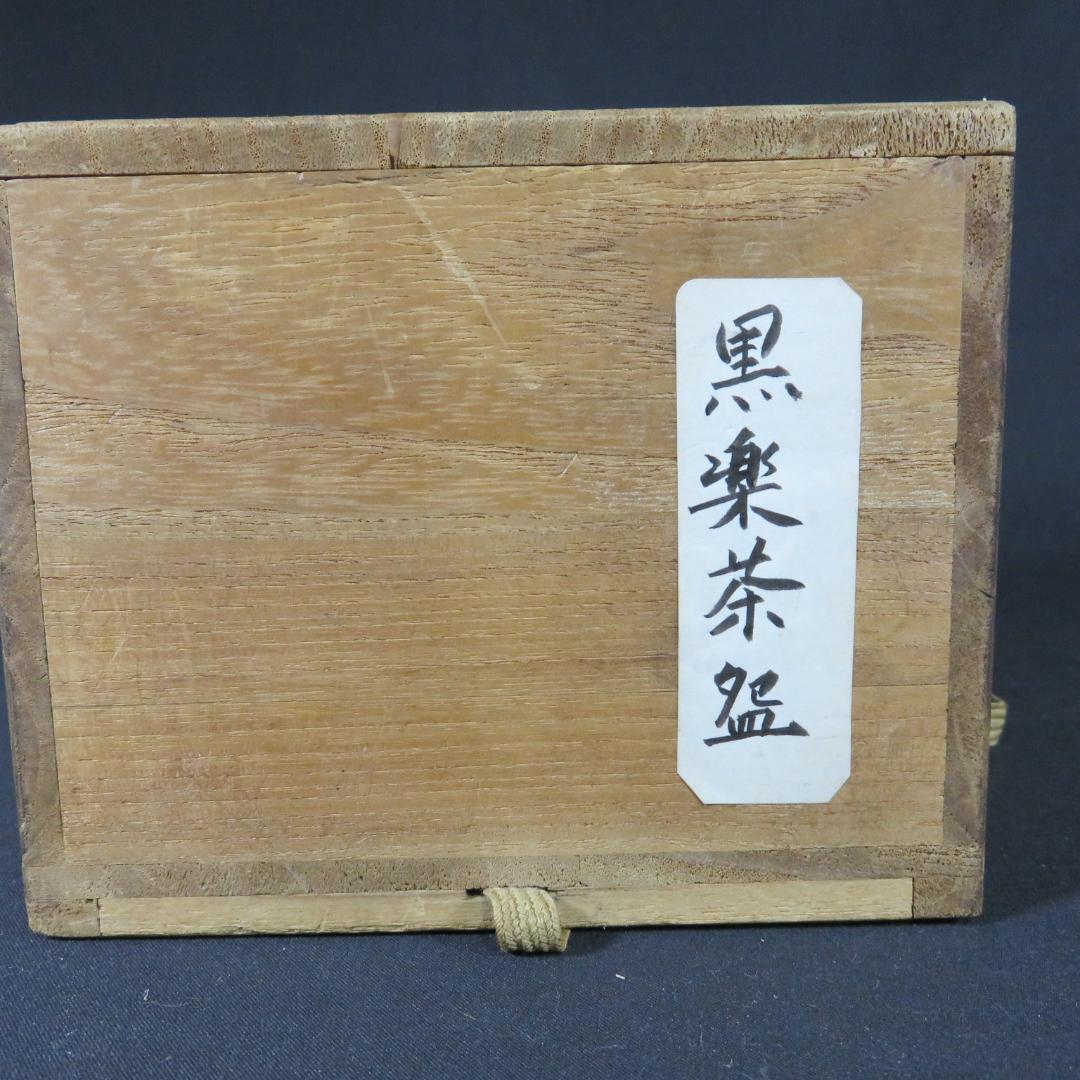 黒楽茶盌